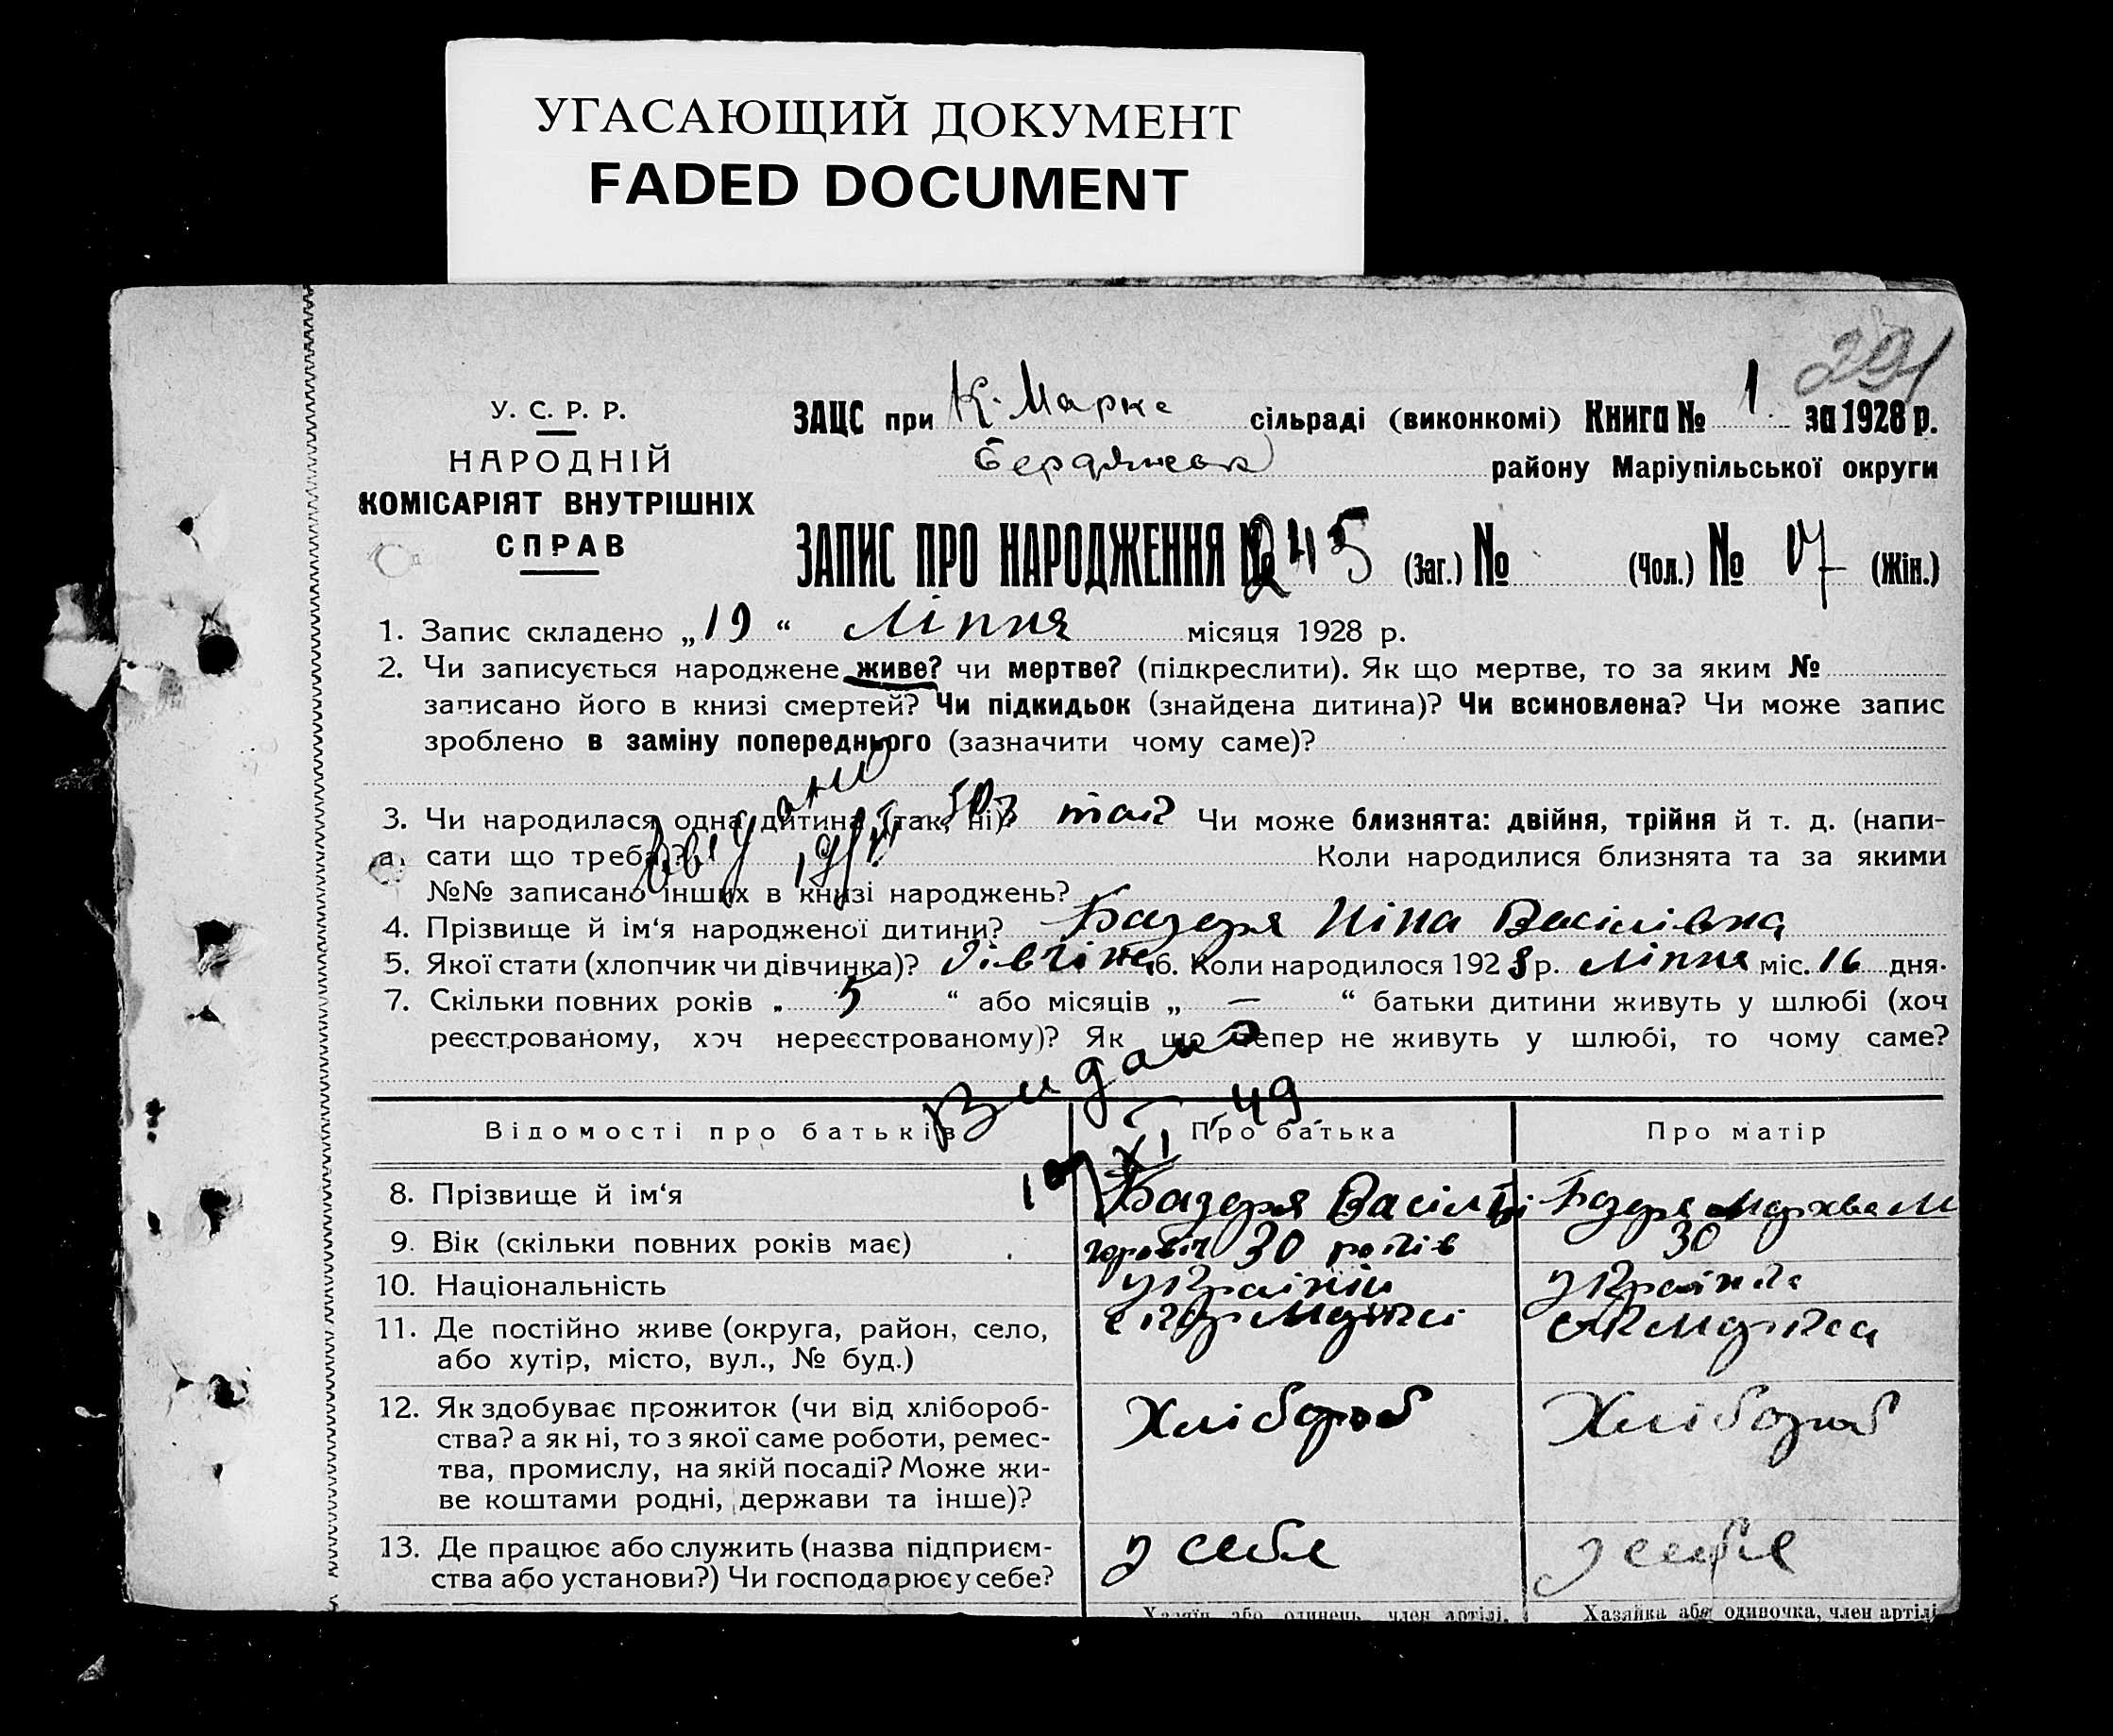 УГАСАЮЩИЙ ДОКУМЕНТ
FADED DOCUMENT
291
У. С. Р. Р.
НАРОДНІЙ
КОМІСАРІЯТ ВНУТРІШНІХ
СПРАВ
ЗАЦС при К. Маркс сільраді (виконкомі) Книга № 1 за 1928 р.
Бердянськ району Маріупільської округи
ЗАПИС ПРО НАРОДЖЕННЯ № 245 (Заг.) № (Чол.) № (Жін.)
1. Запис складено „19“ Ліпня місяця 1928 р.
2. Чи записується народжене живе? чи мертве? (підкреслити). Як що мертве, то за яким №
записано його в книзі смертей? Чи підкидьок (знайдена дитина)? Чи всиновлена? Чи може запис
зроблено в заміну попереднього (зазначити чому саме)?
3. Чи народилася одна дитина (так, ні)? так Чи може близнята: двійня, трійня й т. д. (напи-
сати що треба)? Коли народилися близнята та за якими
№№ записано інших в книзі народжень?
4. Прізвище й ім‘я народженої дитини? Баздря Ніна Васілівна
5. Якої стати (хлопчик чи дівчинка)? дівчінка 6. Коли народилося 1928 р. Ліпня міс. 16 дня.
7. Скільки повних років „5“ або місяців „—“ батьки дитини живуть у шлюбі (хоч
реєстрованому, хоч нереєстрованому)? Як що тепер не живуть у шлюбі, то чому саме?
Видано
XI 49
Відомості про батьків Про батька Про матір
8. Прізвище й ім‘я Баздря Васіль Баздря
9. Вік (скільки повних років має) 30 років 30
10. Національність українці українка
11. Де постійно живе (округа, район, село,
або хутір, місто, вул., № буд.)
12. Як здобуває прожиток (чи від хлібороб-
ства? а як ні, то з якої саме роботи, ремес-
тва, промислу, на якій посаді? Може жи-
ве коштами родні, держави та інше)?
Хлібороб Хлібороб
13. Де працює або служить (назва підприєм-
ства або установи?) Чи господарює у себе?
у себе у себе
Хазяїн або одинець, член артілі, Хазяйка або одиночка, член артілі